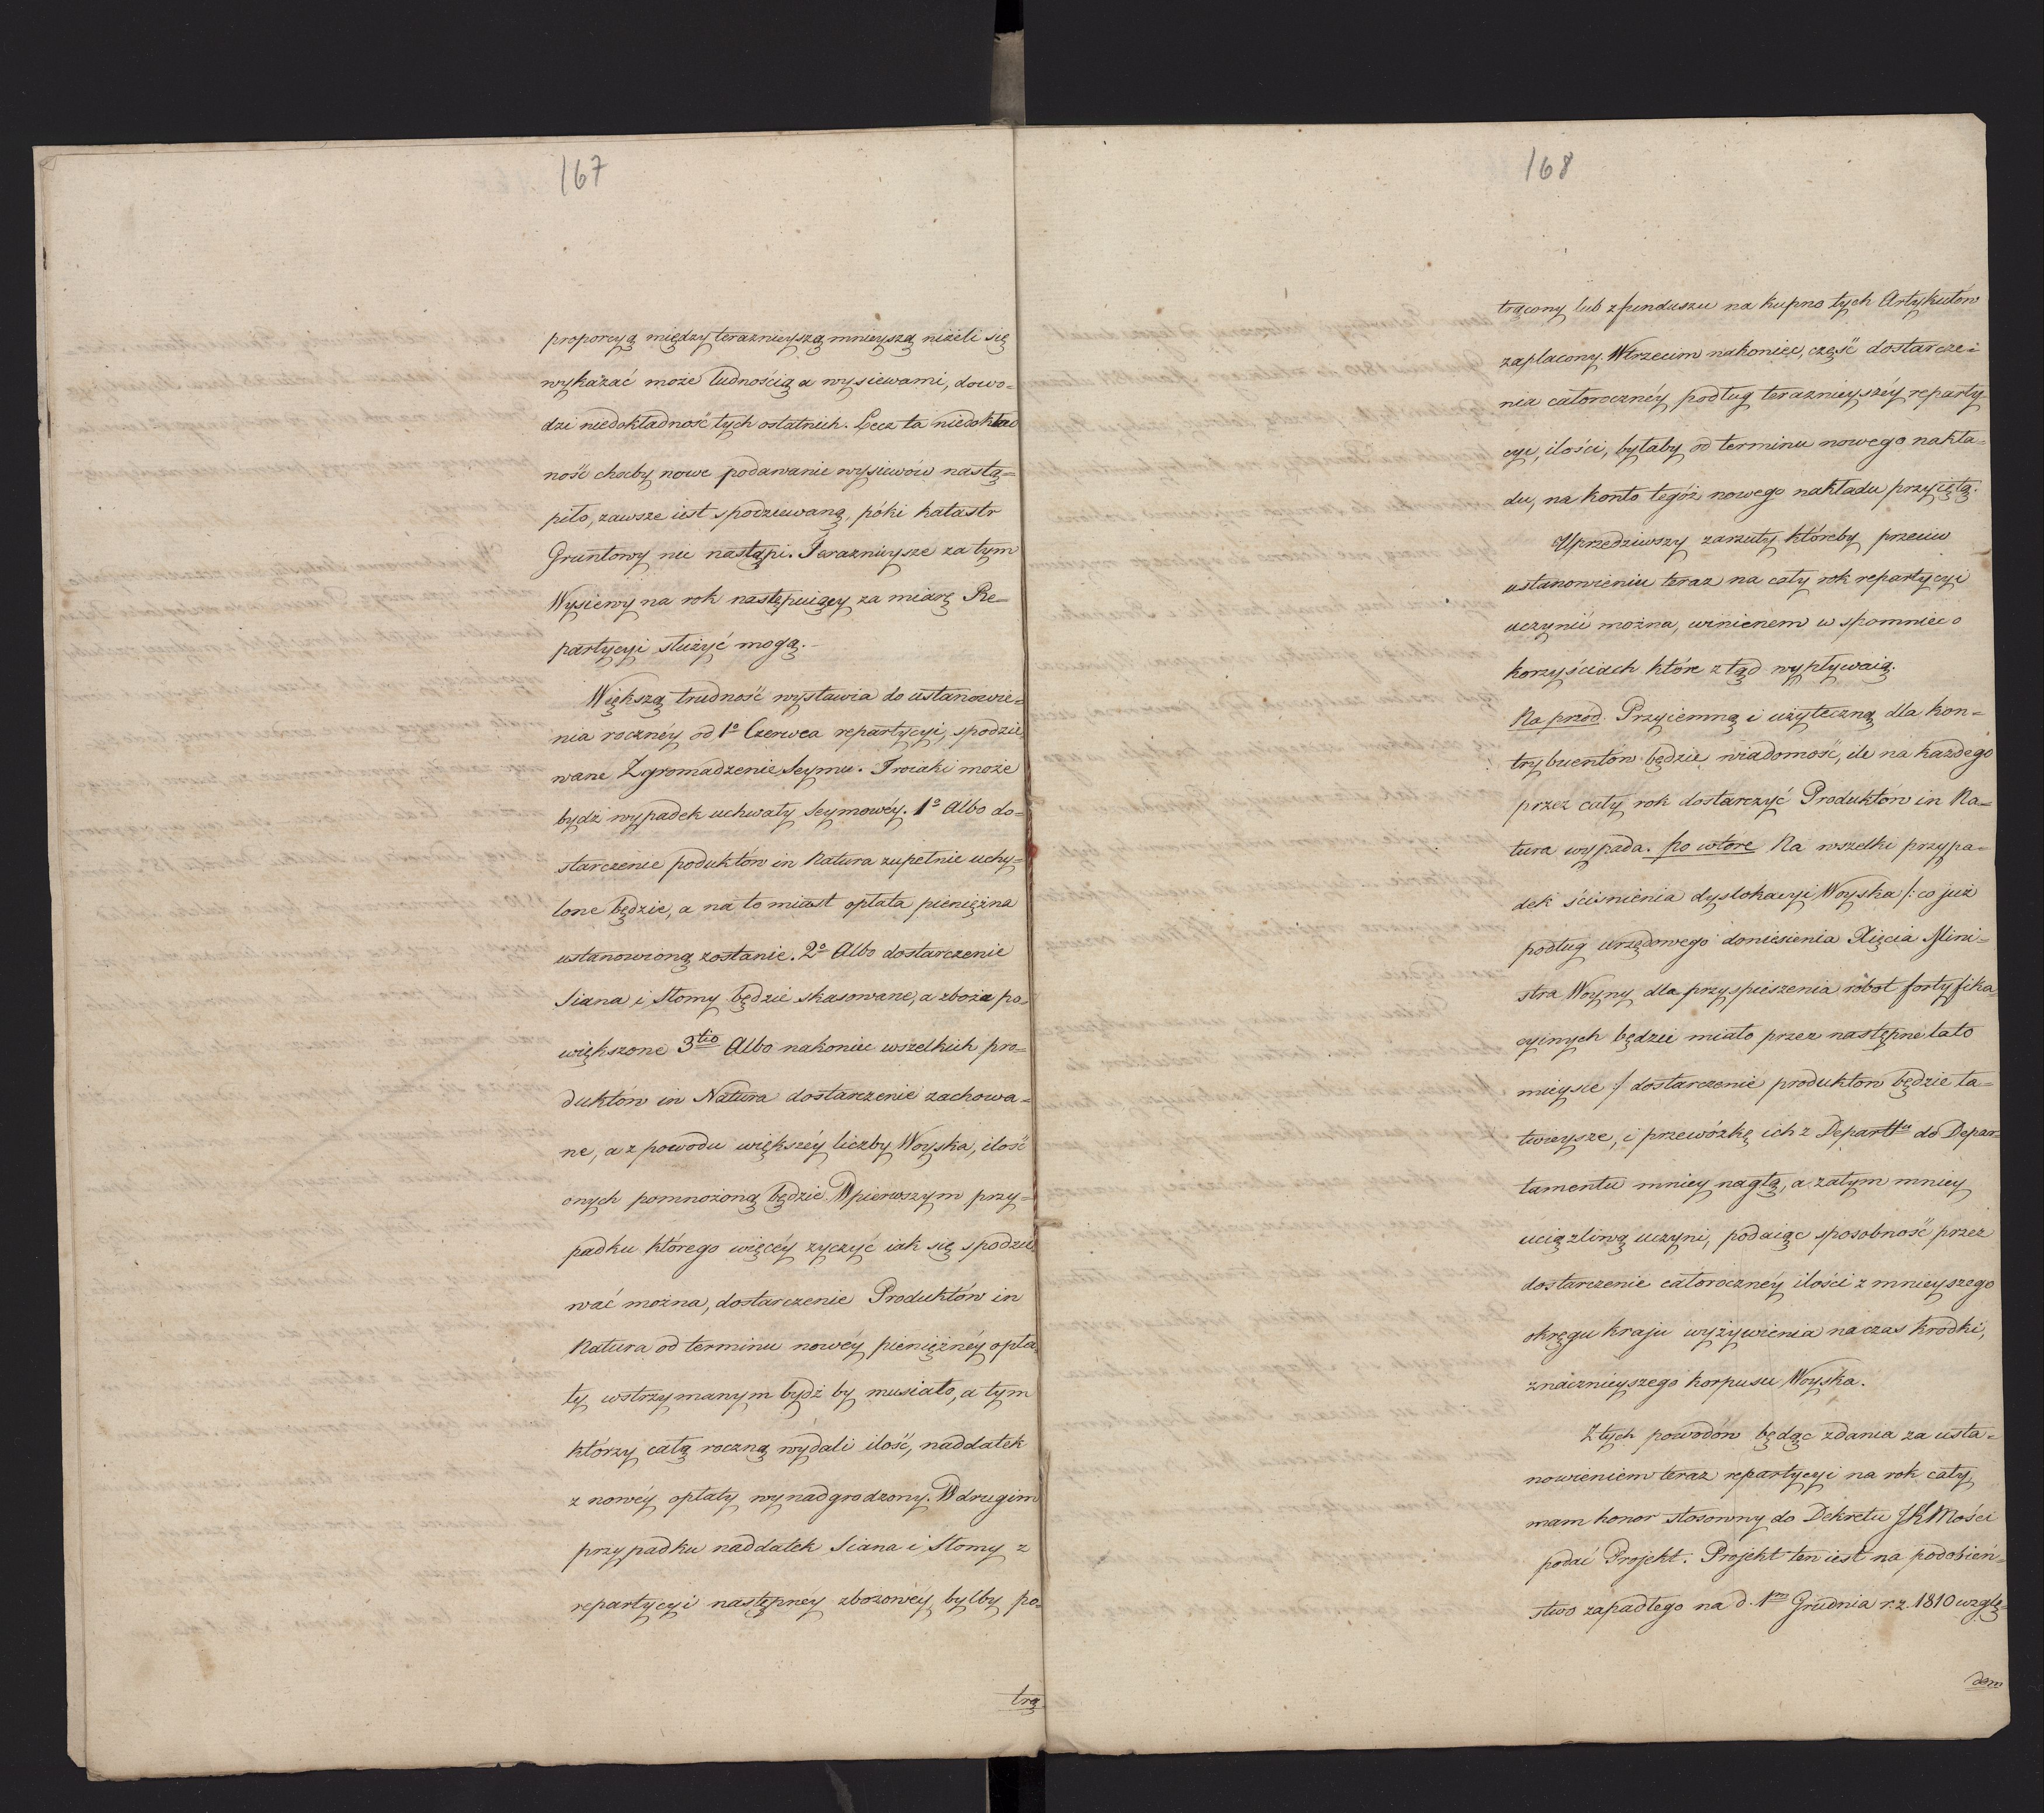 167
proporcyą między teraznieyszą mnieyszą niżeli się
wykazać może ludnością a wysiewami, dowo-
dzi niedokładność tych ostatnich. Lecz ta niedokład
ność choćby nowe podawanie wysiewów nastą=
piło, zawsze iest spodziewaną, póki katastr
Gruntowy nie nastąpi. Teraznieysze zatym
Wysiewy na rok następuiący za miarę Re-
partycyi służyć mogą.-
Większą trudność wystawia do ustanowie=
nia rocznéy od 1º Czerwca repartycyi, spodzie
wane Zgromadzenie Seymu. Troiaki może
bydź wypadek uchwały Seymowéy. 1º Albo do=
starczenie poduktów in Natura zupełnie uchy=
lone będzie, a na to miast opłata pieniężna
ustanowioną zostanie. 2º Albo dostarczenie
Siana i Słomy będzie skasowane, a zboża po=
większone 3tio Albo nakoniec wszelkich pro=
duktów in Natura dostarczenie zachowa=
ne, a z powodu większéy liczby Woyska, ilość
onych pomnożoną będzie. W pierwszym przy=
padku którego więcéy zyczyć iak się spodzie
wać można, dostarczenie Produktów in
Natura od terminu nowéy pieniężnéy opła
ty wstrzymanym bydź by musiało, a tym
którzy całą roczną wydali ilość, naddatek
z nowéy opłaty wynadgrodzony. W drugim
przypadku naddatek Siana i Słomy z
repartycyi następnéy zbożowéy byłby po=
trą
168
trącony lub z funduszu na kupno tych Artykułów
zapłacony. W trzecim nakoniec, część dostarcze=
nia całorocznéy podług teraznieyszéy reparty
cyi, ilości, byłaby od terminu nowego nakła=
du, na konto tegóż nowego nakładu przyjętą.
Uprzedziwszy zarzuty któreby przeciw
ustanowieniu teraz na cały rok repartycyi
uczynić można, winienem wspomnieć o
korzyściach które ztąd wypływaią.
Na przód. Przyiemną i użyteczną dla kon=
trybuentów będzie wiadomość, ile na każdego
przez cały rok dostarczyć Produktów in Na=
tura wypada. po wtóre Na wszelki przypa=
dek ściśnienia dyslokacyi Woyska /: co już
podług urzędowego doniesienia Xięcia Mini=
stra Woyny dla przyspieszenia robót fortyfika=
cyinych będzie miało przez następne lato
mieysce :/ dostarczenie produktów będzie ła=
twieysze, i przewózkę ich z Departtu do Depar=
tamentu mniey nagłą, a zatym mniey
uciążliwą uczyni, podaiąc sposobność przez
dostarczenie całorocznéy ilości z mnieyszego
okręgu kraju wyżywienia na czas krótki,
znacznieyszego korpusu Woyska.
Z tych powodów będąc zdania za usta=
nowieniem teraz repartycyi na rok cały
mam honor stosowny do Dekretu JKMości
podać Projekt. Projekt ten iest na podobień=
stwo zapadłego na d. 1m Grudnia r.z. 1810 wzglę=
dem